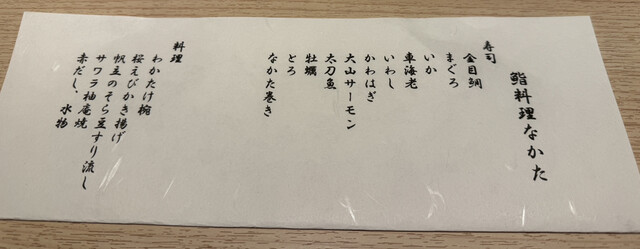 鮨料理なかた
寿司
金目鯛
まぐろ
いか
車海老
いわし
かわはぎ
大山サーモン
太刀魚
牡蠣
とろ
なかた巻き
料理
わかたけ椀
桜えびかき揚げ
帆立のそら豆すり流し
サワラ柚庵焼
赤だし、水物